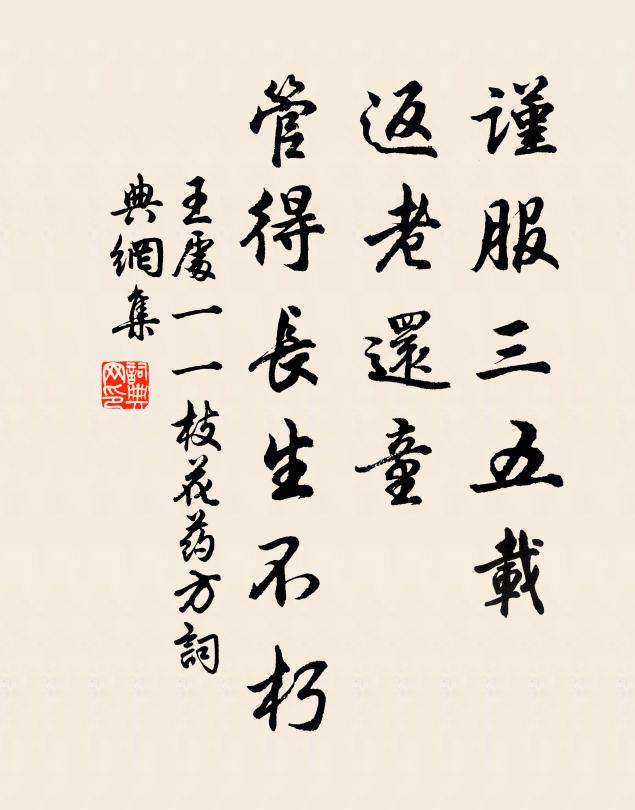 謹服三五載
返老還童
管得長生不朽
王處一一枝花药方詞
典網集
詞典網印